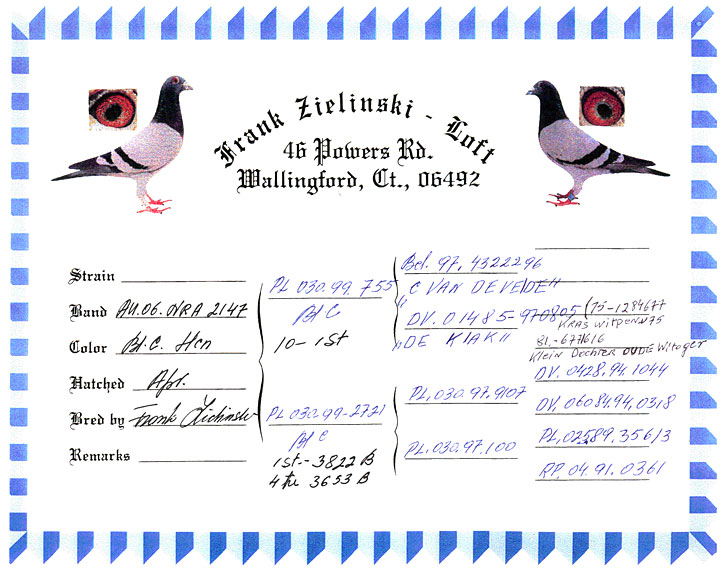 Frank Zielinski - Loft
46 Powers Rd.
Wallingford, Ct., 06492
Strain
Band AU.06.NRA 2147
Color Bl.C. Hen
Hatched Apr.
Bred by Frank Zielinski
Remarks
PL 030.99.755
Bl C
10-1st
PL 030.99-2721
Bl C
1st-3822 B
4th 3653 B
Bel. 97. 4322296
"C VAN DE VELDE"
DV. 01485-970805
"DE KIAK"
PL. 030.97.9107
PL. 030.97.100
75-1284677
KRAS WITPEN 75
81.-677616
Klein Dochter OUDE Witoger
DV. 0428.94.1044
DV. 06084.94.0318
PL. 02589.35613
RP. 04.91.0361